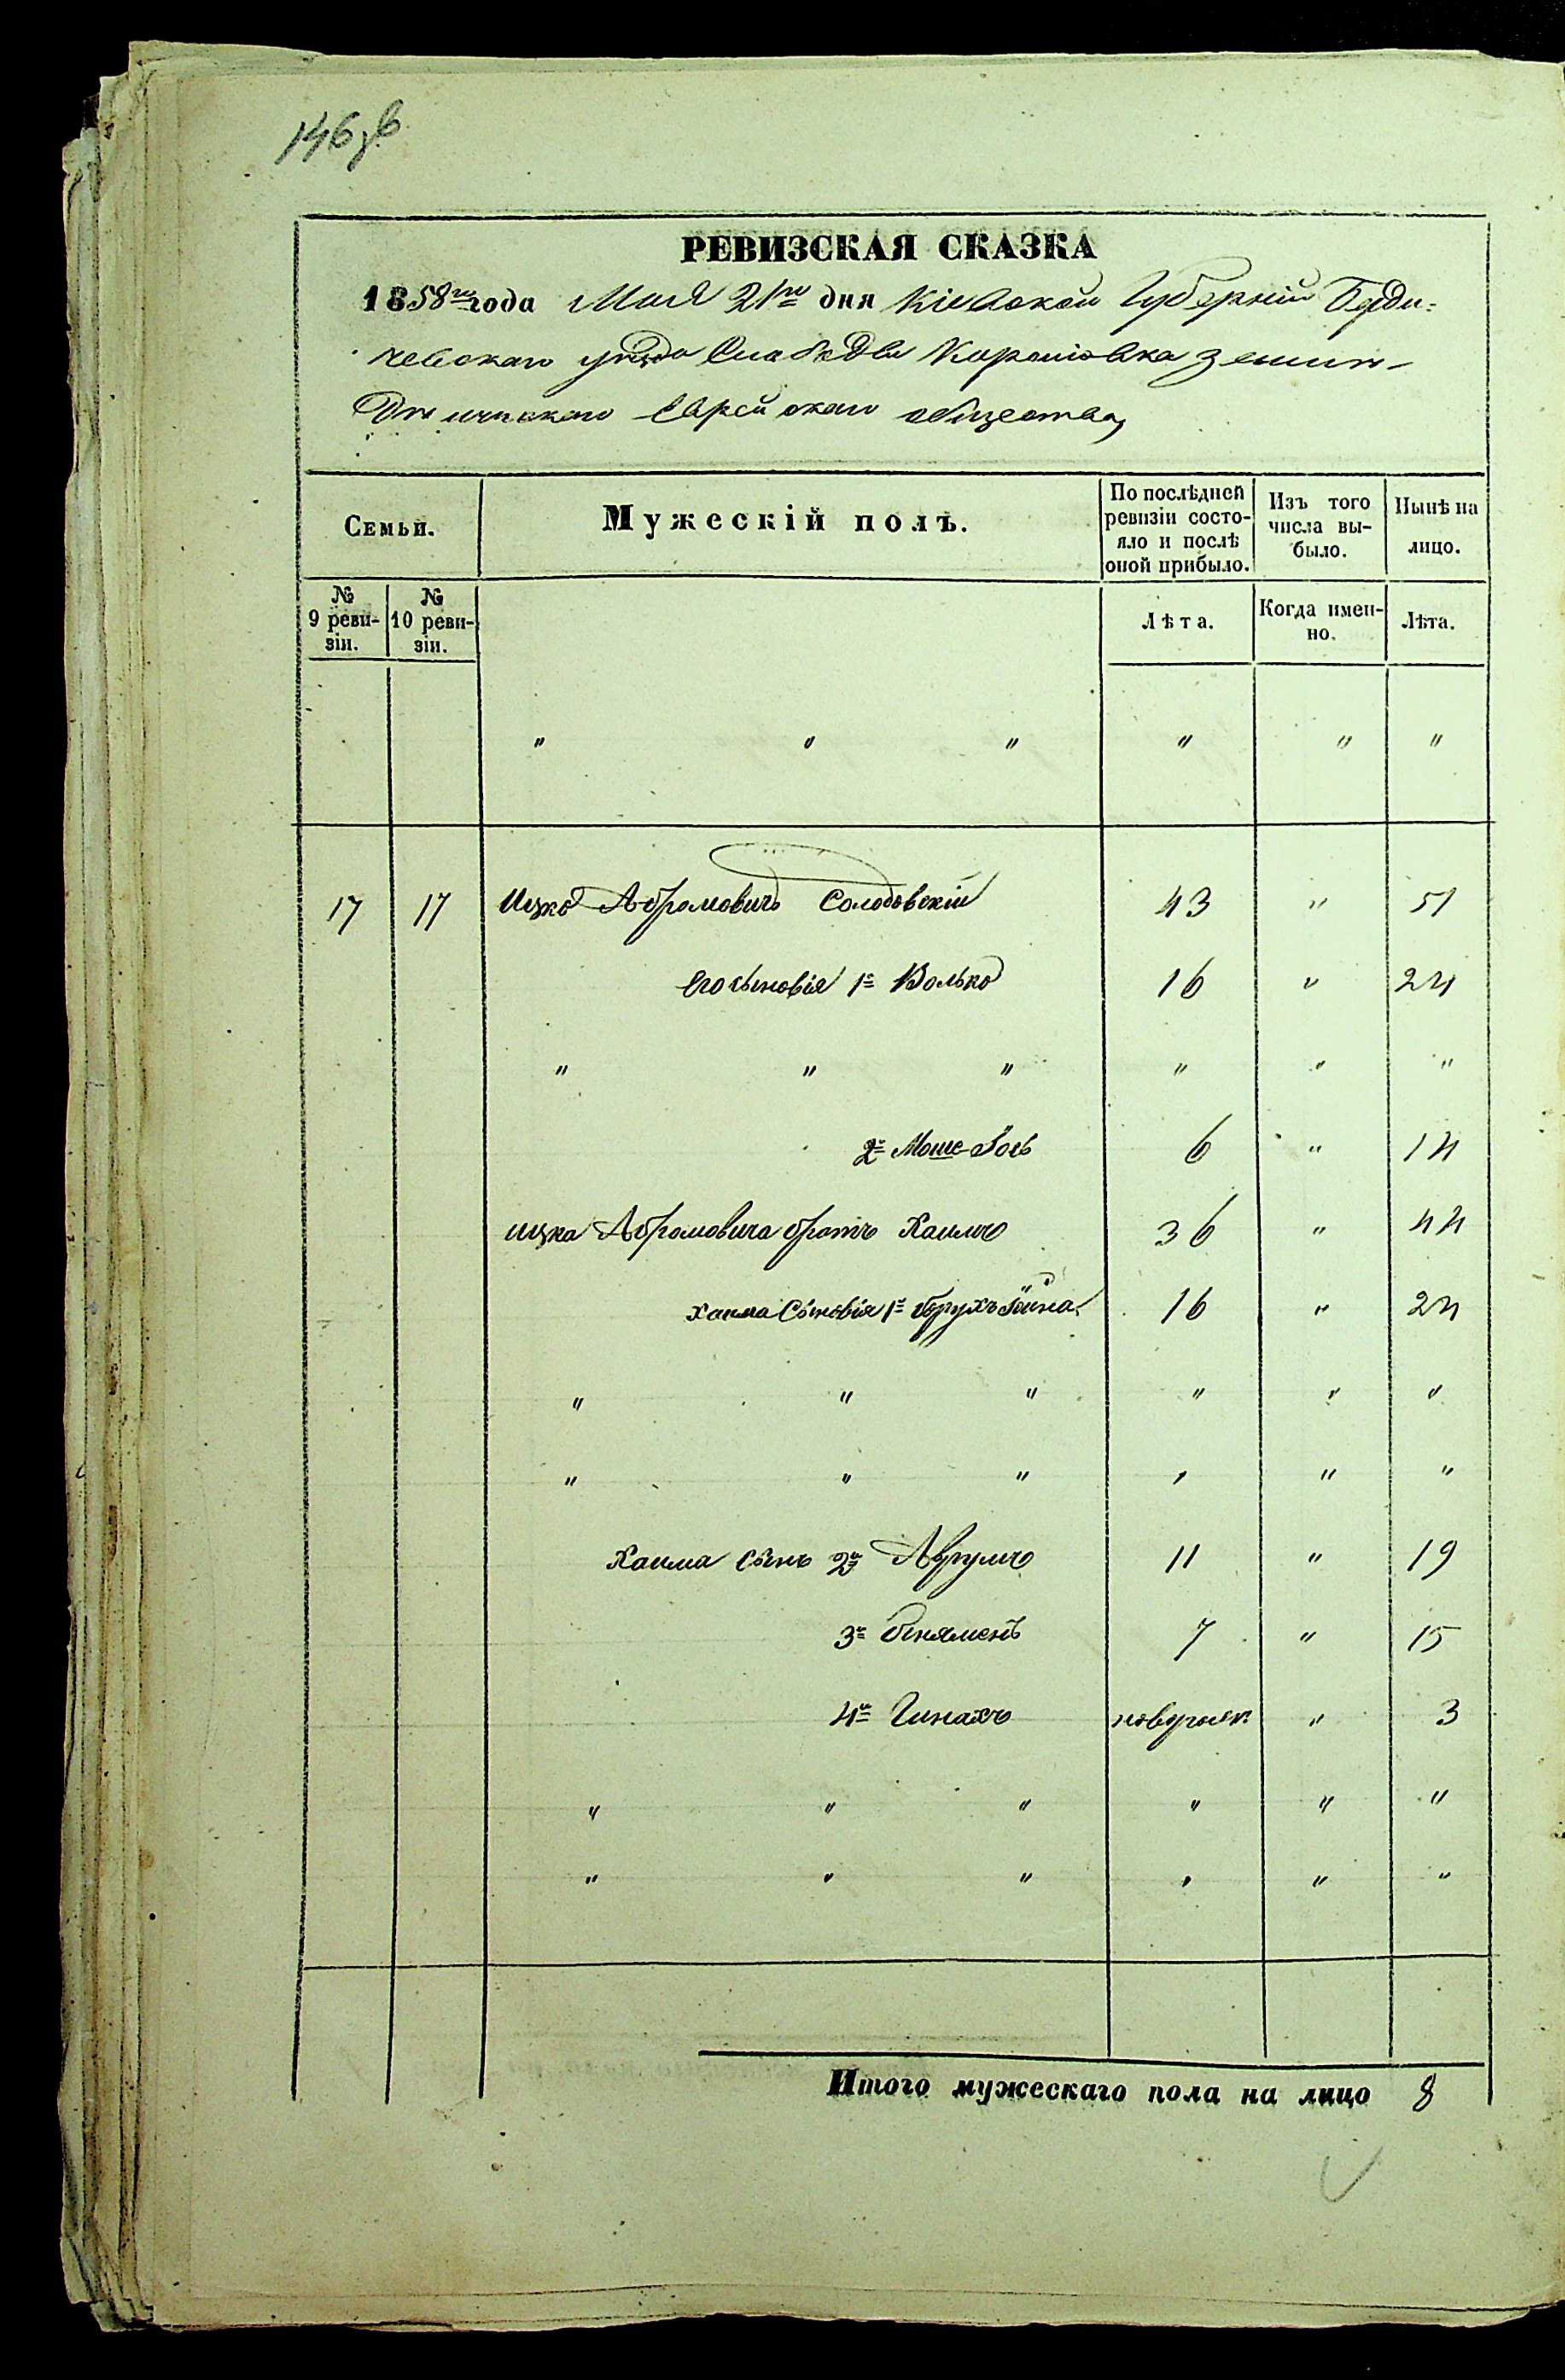 146 зв
РЕВИЗСКАЯ СКАЗКА
1858го года Мая 21го дня Кіевской Губерніи Берди-
чевскаго уѣзда Слабодви земле-
дѣлческаго Еврейскаго общества
Семьи. Мужескій полъ. По послѣдней ревизіи состо- яло и послѣ оной прибыло. Изъ того числа вы- было. Нынѣ на лицо.
№ 9 реви- зіи. № 10 реви- зіи. Лѣта. Когда имен- но. Лѣта.
" " " " " "
17 17 Ицко Абрамовичъ Солодовскій 43 " 51
Его сыновія 1й Волько 16 " 24
" " " " " "
2й Моше-Іось 6 " 14
Ицка Абрамовича братъ Хаимъ 36 " 44
Хаима Сыновія 1й Борухъ 16 " 24
" " " " " "
" " " " " "
Хаима Сынъ 2й Аврумъ 11 " 19
3й Бенямень 7 " 15
4й Пинахъ новорожд. " 3
" " " " " "
" " " " " "
Итого мужескаго пола на лицо 8